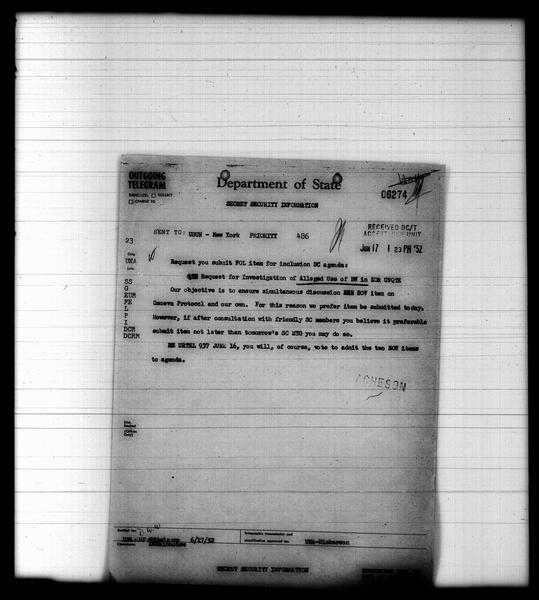 OUTGOING
TELEGRAM
INDICATE: COLLECT
CHARGE TO
Department of State
06274
SECRET SECURITY INFORMATION
SENT TO: USUN - New York PRIORITY 486
RECEIVED DC/T
JUN 17 1 23 PM '52
23
Orig
UNA
Info
SS
G
EUR
FE
L
P
I
DCR
DCRM
Request you submit FOL item for inclusion SC agenda:
QTE Request for Investigation of Alleged Use of BW in KOR UNQTE
Our objective is to ensure simultaneous discussion SOV item on
Geneva Protocol and our own. For this reason we prefer item be submitted today.
However, if after consultation with friendly SC members you believe it preferable
submit item not later than tomorrow's SC MTG you may do so.
RE URTEL 937 JUNE 16, you will, of course, vote to admit the two SOV items
to agenda.
ACHESON
(Offices
Only)
Drafted by:
6/17/52
Telegraphic transmission and
classification approved by:
UNA-Hickerson
SECRET SECURITY INFORMATION